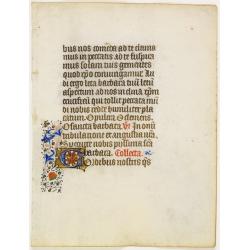 bus nos comēda ad te clama
mus in peccatis ad te suspira
mus solam tuis gementes
quod xp̄o coniungamur. Iu
di ergo leta barbara tuū leni
aspectum ad nos inclina xp̄m
crucifixū qui tollit peccata mū
di nobis redde humiliter placa
tum. O pulcra, O clemens,
O sancta barbara. Vs In omī
tribulatione et angustia nrā
Succurre nobis piissima scā
Barbara. Collecta.
Cordibus nostris qs